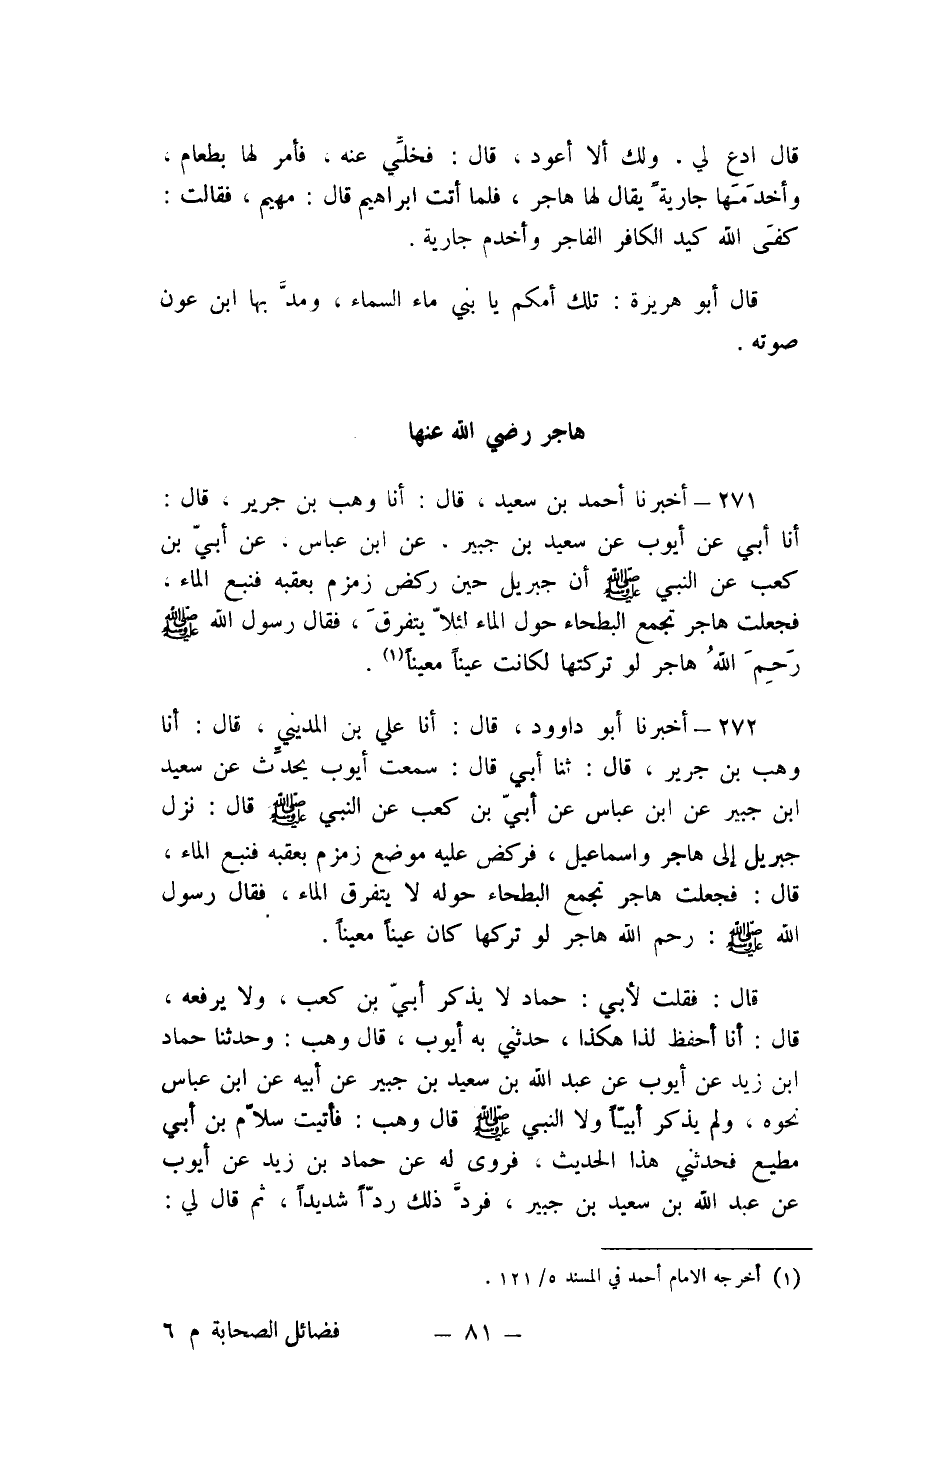 قال ادع لي . ولك ألا أعود ، قال : فخلَّي عنه ، فأمر لها بطعام ،
وأخدَمَها جاريةً يقال لها هاجر ، فلما أتت ابراهيم قال : مهيم ، فقالت :
كفَى الله كيد الكافر الفاجر وأخدم جارية .
قال أبو هريرة : تلك أمكم يا بني ماء السماء ، ومدَّ بها ابن عون
صوته .
هاجر رضي الله عنها
٢٧١ – أخبرنا أحمد بن سعيد ، قال : أنا وهب بن جرير ، قال :
أنا أبي عن أيوب عن سعيد بن جبير . عن ابن عباس . عن أبيّ بن
كعب عن النبي ﷺ أن جبريل حين ركض زمزم بعقبه فنبع الماء ،
فجعلت هاجر تجمع البطحاء حول الماء لئلاّ يتفرقَ ، فقال رسول الله ﷺ
رَحِمَ اللهُ هاجر لو تركتها لكانت عيناً معيناً(١) .
٢٧٢ – أخبرنا أبو داوود ، قال : أنا علي بن المديني ، قال : أنا
وهب بن جرير ، قال : ثنا أبي قال : سمعت أيوب يحدِّث عن سعيد
ابن جبير عن ابن عباس عن أبيّ بن كعب عن النبي ﷺ قال : نزل
جبريل إلى هاجر واسماعيل ، فركض عليه موضع زمزم بعقبه فنبع الماء ،
قال : فجعلت هاجر تجمع البطحاء حوله لا يتفرق الماء ، فقال رسول
الله ﷺ : رحم الله هاجر لو تركها كان عيناً معيناً .
قال : فقلت لأبي : حماد لا يذكر أبيّ بن كعب ، ولا يرفعه ،
قال : أنا أحفظ لذا هكذا ، حدثني به أيوب ، قال وهب : وحدثنا حماد
ابن زيد عن أيوب عن عبد الله بن سعيد بن جبير عن أبيه عن ابن عباس
نحوه ، ولم يذكر أبيّاً ولا النبي ﷺ قال وهب : فأتيت سلاّم بن أبي
مطيع فحدثني هذا الحديث ، فروى له عن حماد بن زيد عن أيوب
عن عبد الله بن سعيد بن جبير ، فردَّ ذلك ردّاً شديداً ، ثم قال لي :
(١) أخرجه الامام أحمد في المسند ٥/ ١٢١ .
– ٨١ – فضائل الصحابة م ٦